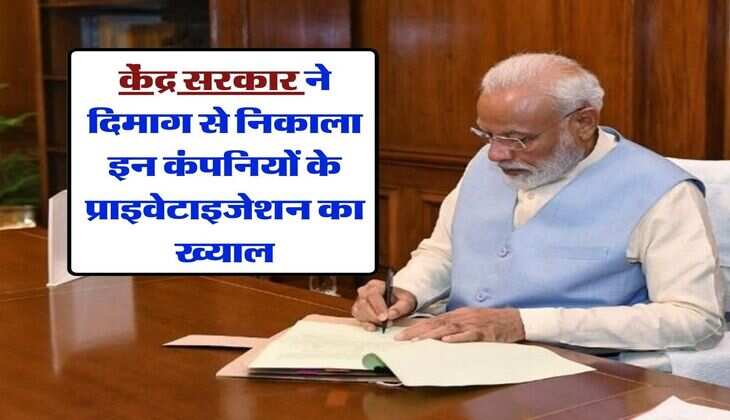 केंद्र सरकार ने
दिमाग से निकाला
इन कंपनियों के
प्राइवेटाइजेशन का
ख्याल